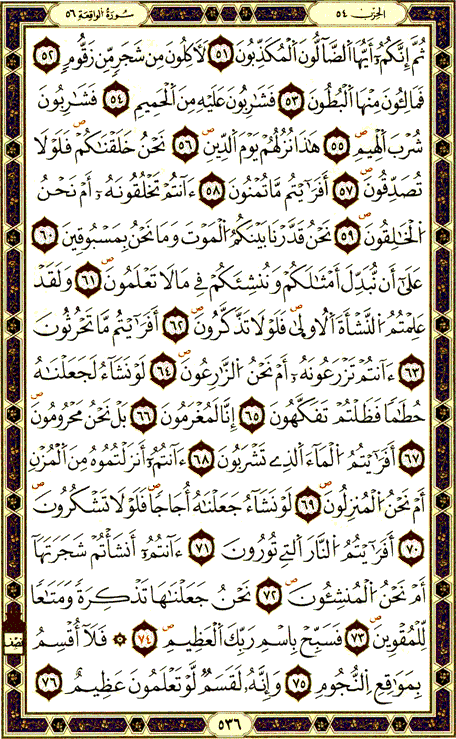 الحزب ٥٤
سورة الواقعة ٥٦
ثُمَّ إِنَّكُمُۥٓ أَيُّهَا ٱلضَّآلُّونَ ٱلْمُكَذِّبُونَ ٥١ لَأٓكِلُونَ مِن شَجَرٍ مِّن زَقُّومٍ ٥٢
فَمَالِـُٔونَ مِنْهَا ٱلْبُطُونَ ٥٣ فَشَٰرِبُونَ عَلَيْهِ مِنَ ٱلْحَمِيمِ ٥٤ فَشَٰرِبُونَ
شُرْبَ ٱلْهِيمِ ٥٥ هَٰذَا نُزُلُهُمْ يَوْمَ ٱلدِّينِ ٥٦ نَحْنُ خَلَقْنَٰكُمْ فَلَوْلَا
تُصَدِّقُونَ ٥٧ أَفَرَٰٓيْتُم مَّا تُمْنُونَ ٥٨ ءَآنتُمْ تَخْلُقُونَهُۥٓ أَمْ نَحْنُ
ٱلْخَٰلِقُونَ ٥٩ نَحْنُ قَدَّرْنَا بَيْنَكُمُ ٱلْمَوْتَ وَمَا نَحْنُ بِمَسْبُوقِينَ ٦٠
عَلَىٰٓ أَن نُّبَدِّلَ أَمْثَٰلَكُمْ وَنُنشِئَكُمْ فِي مَا لَا تَعْلَمُونَ ٦١ وَلَقَدْ
عَلِمْتُمُ ٱلنَّشْأَةَ ٱلُاولَىٰ فَلَوْلَا تَذَّكَّرُونَ ٦٢ أَفَرَٰٓيْتُم مَّا تَحْرُثُونَ
٦٣ ءَآنتُمْ تَزْرَعُونَهُۥٓ أَمْ نَحْنُ ٱلزَّٰرِعُونَ ٦٤ لَوْ نَشَآءُ لَجَعَلْنَٰهُ
حُطَٰمًا فَظَلْتُمْ تَفَكَّهُونَ ٦٥ إِنَّا لَمُغْرَمُونَ ٦٦ بَلْ نَحْنُ مَحْرُومُونَ
٦٧ أَفَرَٰٓيْتُمُ ٱلْمَآءَ ٱلَّذِي تَشْرَبُونَ ٦٨ ءَآنتُمُۥٓ أَنزَلْتُمُوهُ مِنَ ٱلْمُزْنِ
أَمْ نَحْنُ ٱلْمُنزِلُونَ ٦٩ لَوْ نَشَآءُ جَعَلْنَٰهُ أُجَاجًا فَلَوْلَا تَشْكُرُونَ
٧٠ أَفَرَٰٓيْتُمُ ٱلنَّارَ ٱلَّتِي تُورُونَ ٧١ ءَآنتُمُۥٓ أَنشَأْتُمْ شَجَرَتَهَآ
أَمْ نَحْنُ ٱلْمُنشِـُٔونَ ٧٢ نَحْنُ جَعَلْنَٰهَا تَذْكِرَةً وَمَتَٰعًا
لِّلْمُقْوِينَ ٧٣ فَسَبِّحْ بِاسْمِ رَبِّكَ ٱلْعَظِيمِ ٧٤ ۞ فَلَآ أُقْسِمُ
نصف
بِمَوَٰقِعِ ٱلنُّجُومِ ٧٥ وَإِنَّهُۥ لَقَسَمٌ لَّوْ تَعْلَمُونَ عَظِيمٌ ٧٦
٥٣٦